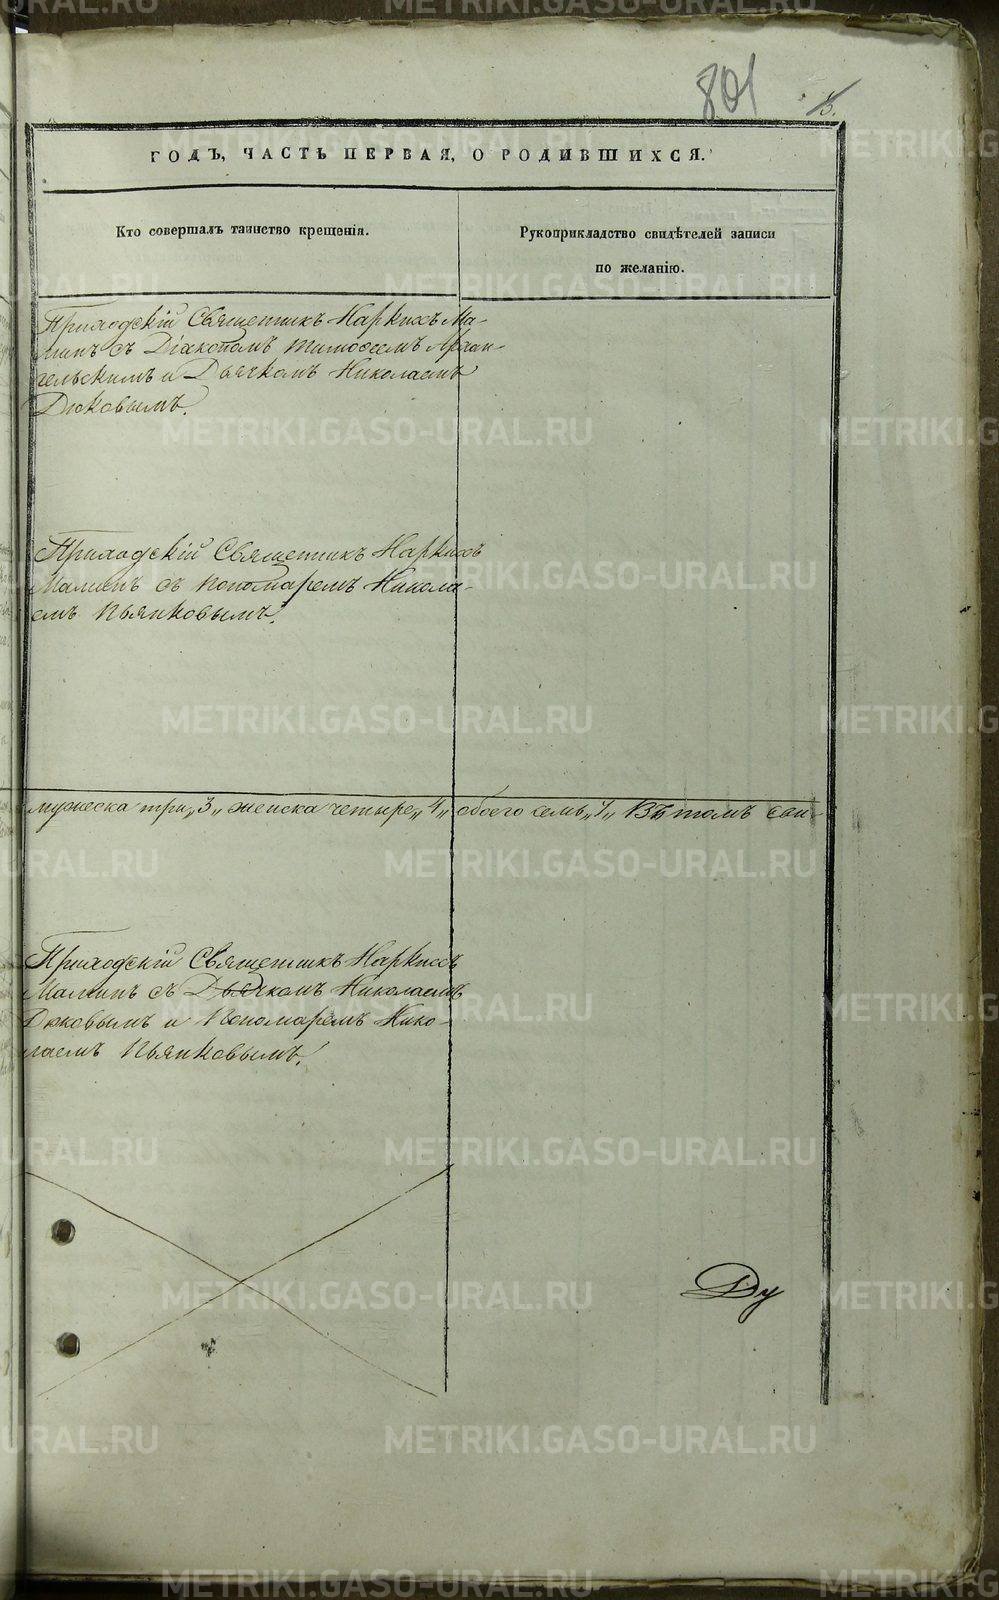 801
15.
ГОДЪ, ЧАСТЬ ПЕРВАЯ, О РОДИВШИХСЯ.
Кто совершалъ таинство крещенія.
Рукоприкладство свидѣтелей записи
по желанію.
Приходскій Священникъ Наркисъ Ма-
минъ съ Діакономъ Тимофеемъ Архан-
гельскимъ и Дьячкомъ Николаемъ
Дюковымъ.
Приходскій Священникъ Наркисъ
Маминъ съ Пономаремъ Никола-
емъ Пьянковымъ.
мужеска три „3„ женска четыре „4„ обоего семь „7„ Въ томъ сви-
Приходскій Священникъ Наркисъ
Маминъ съ Дьячкомъ Николаемъ
Дюковымъ и Пономаремъ Нико-
лаемъ Пьянковымъ.
Ду
METRIKI.GASO-URAL.RU